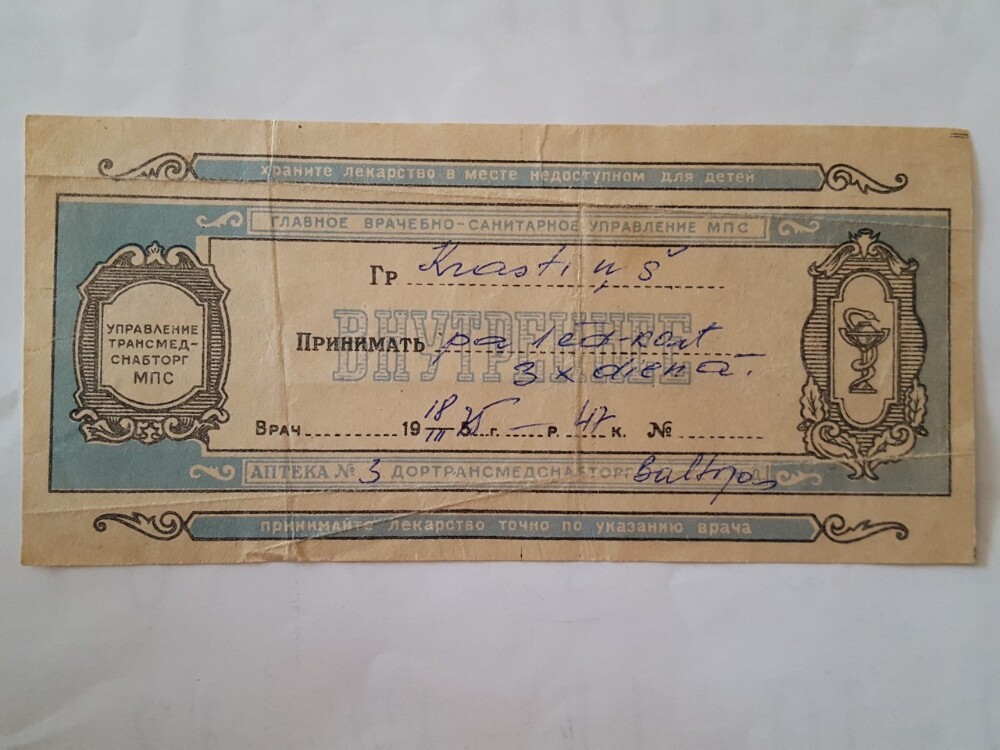 храните лекарство в месте недоступном для детей
ГЛАВНОЕ ВРАЧЕБНО-САНИТАРНОЕ УПРАВЛЕНИЕ МПС
УПРАВЛЕНИЕ
ТРАНСМЕД-
СНАБТОРГ
МПС
Гр Krastiņš
ВНУТРЕННЕЕ
Принимать pa 1 ēd-kart
3 x dienā.
Врач 19 18/III г. — р. 47 к. №
АПТЕКА № 3 ДОРТРАНСМЕДСНАБТОРГ Baltijas
принимайте лекарство точно по указанию врача